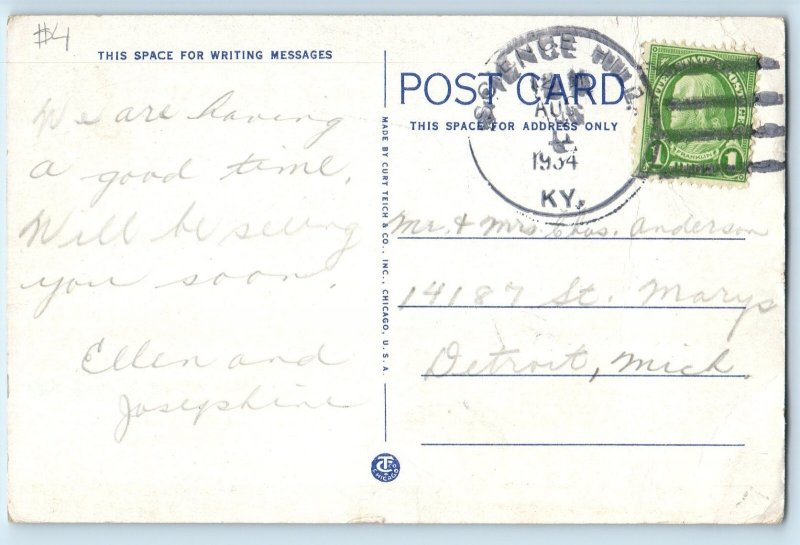 $4
THIS SPACE FOR WRITING MESSAGES
We are having
a good time.
Will be seeing
you soon.
Ellen and
Josephine
MADE BY CURT TEICH & CO., INC., CHICAGO, U.S.A.
CTC
CHICAGO
POST CARD
THIS SPACE FOR ADDRESS ONLY
SCIENCE HILL
AUG
1934
KY.
UNITED STATES POSTAGE
FRANKLIN
1 1
Mr. & Mrs. Chas. Anderson
14187 St. Marys
Detroit, Mich.